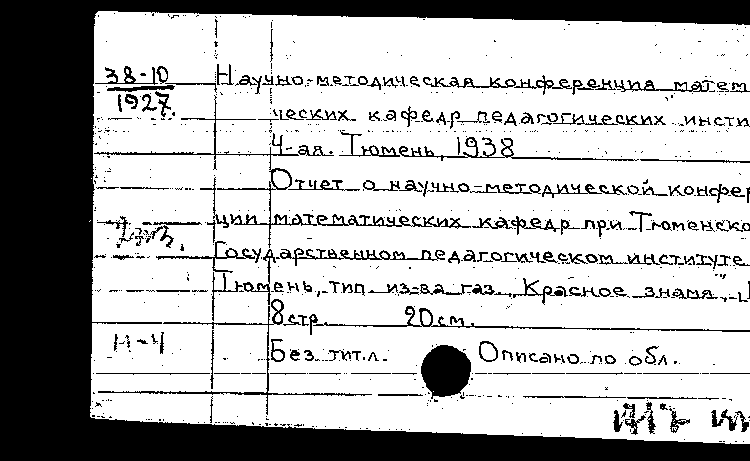 38-10
1927
Научно-методическая конференция матем
ческих кафедр педагогических инсти
4-ая. Тюмень, 1938
Отчет о научно-методической конфер
ции математических кафедр при Тюменско
Государственном педагогическом институте
Тюмень, тип. из-ва газ. „Красное знамя",
8 стр. 20 см.
Н-4
Без тит.л. Описано по обл.